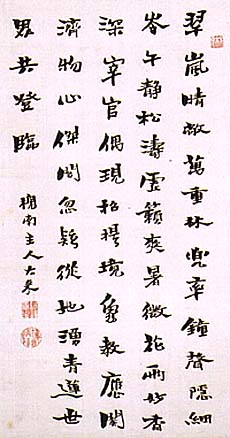 翠嵐晴敞萬重林兜率鐘聲隱細
岑午靜松濤虛籟爽暑微花雨妙香
深宰官偶現招提境象教應開
濟物心傑閣忽疑從地湧青蓮世
界共登臨
南主人